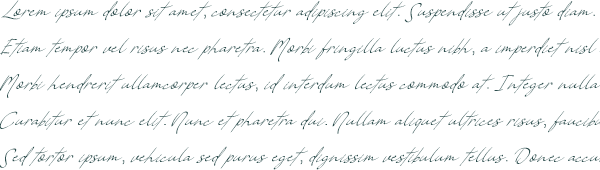 Lorem ipsum dolor sit amet, consectetur adipiscing elit. Suspendisse ut justo diam.
Etiam tempor vel risus nec pharetra. Morbi fringilla luctus nibh, a imperdiet nisl
Morbi hendrerit ullamcorper lectus, id interdum lectus commodo at. Integer nulla
Curabitur et nunc elit. Nunc et pharetra dui. Nullam aliquet ultrices risus, faucib
Sed tortor ipsum, vehicula sed purus eget, dignissim vestibulum tellus. Donec accu